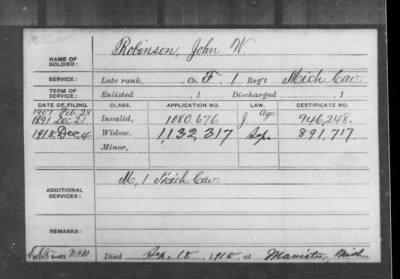 Robinson, John W.
NAME OF SOLDIER:
SERVICE: Late rank, Co. F, 1 Reg't Mich Cav.
TERM OF SERVICE: Enlisted , 1 Discharged , 1
DATE OF FILING. CLASS. APPLICATION NO. LAW. CERTIFICATE NO.
1907 Feb. 28 Age
1891 Dec 21 Invalid, 1080,676 J 946,248.
1918 Dec. 4 Widow, 1,132,317 Sep. 891,717
Minor,
M, 1 Mich Cav.
ADDITIONAL SERVICES:
REMARKS:
Died Sep. 18, 1918, at Manistee, Mich